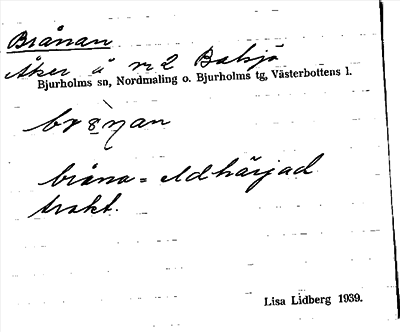 Brånan
Åker å nr 2 Balsjö
Bjurholms sn, Nordmaling o. Bjurholms tg, Västerbottens l.
bråna = eldhärjad
trakt.
Lisa Lidberg 1939.